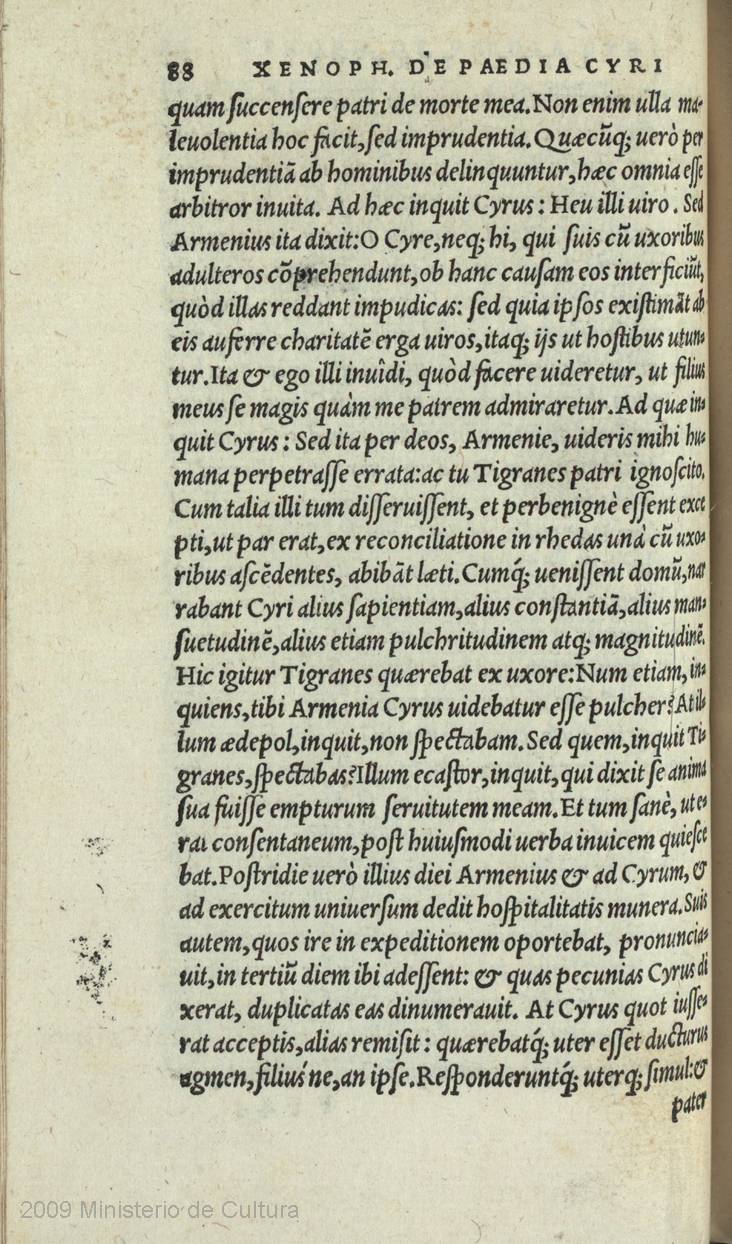 88 XENOPH. DE PAEDIA CYRI
quam ſuccenſere patri de morte mea. Non enim ulla ma-
leuolentia hoc facit, ſed imprudentia. Quæcūq; uerò per
imprudentiā ab hominibus delinquuntur, hæc omnia eſſe
arbitror inuita. Ad hæc inquit Cyrus: Heu illi uiro. Sed
Armenius ita dixit: O Cyre, neq; hi, qui ſuis cū uxoribus
adulteros cōprehendunt, ob hanc cauſam eos interficiūt,
quòd illas reddant impudicas: ſed quia ipſos exiſtimāt ab
eis auferre charitatē erga uiros, itaq; ijs ut hoſtibus utun-
tur. Ita & ego illi inuîdi, quòd facere uideretur, ut filius
meus ſe magis quàm me patrem admiraretur. Ad quæ in-
quit Cyrus: Sed ita per deos, Armenie, uideris mihi hu-
mana perpetraſſe errata: ac tu Tigranes patri ignoſcito.
Cum talia illi tum diſſeruiſſent, et perbenignè eſſent exce
pti, ut par erat, ex reconciliatione in rhedas unà cū uxo-
ribus aſcēdentes, abibāt læti. Cumq́; ueniſſent domū, nar
rabant Cyri alius ſapientiam, alius conſtantiā, alius man-
ſuetudinē, alius etiam pulchritudinem atq; magnitudinē.
Hic igitur Tigranes quærebat ex uxore: Num etiam, in-
quiens, tibi Armenia Cyrus uidebatur eſſe pulcher? At il-
lum ædepol, inquit, non ſpectabam. Sed quem, inquit Ti-
granes, ſpectabas? Illum ecaſtor, inquit, qui dixit ſe anima
ſua fuiſſe empturum ſeruitutem meam. Et tum ſanè, ut e-
rat conſentaneum, poſt huiuſmodi uerba inuicem quieſce
bat. Poſtridie uerò illius diei Armenius & ad Cyrum, &
ad exercitum uniuerſum dedit hoſpitalitatis munera. Suis
autem, quos ire in expeditionem oportebat, pronuncia-
uit, in tertiū diem ibi adeſſent: & quas pecunias Cyrus di
xerat, duplicatas eas dinumerauit. At Cyrus quot iuſſe-
rat acceptis, alias remiſit: quærebatq́; uter eſſet ducturus
agmen, filius´ne, an ipſe. Reſponderuntq́; uterq; ſimul: &
pater
2009 Ministerio de Cultura